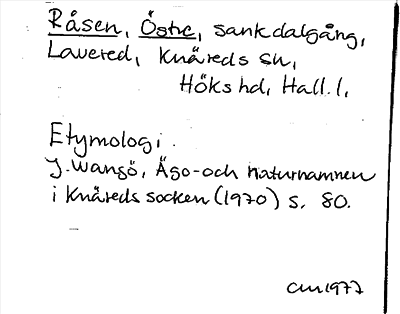 Råsen, Östre, sankdalgång,
Lavered, Knäreds sn,
Höks hd, Hall. l.
Etymologi.
J. Wangö, Ägo- och naturnamnen
i Knäreds socken (1970) s. 80.
CM 1977